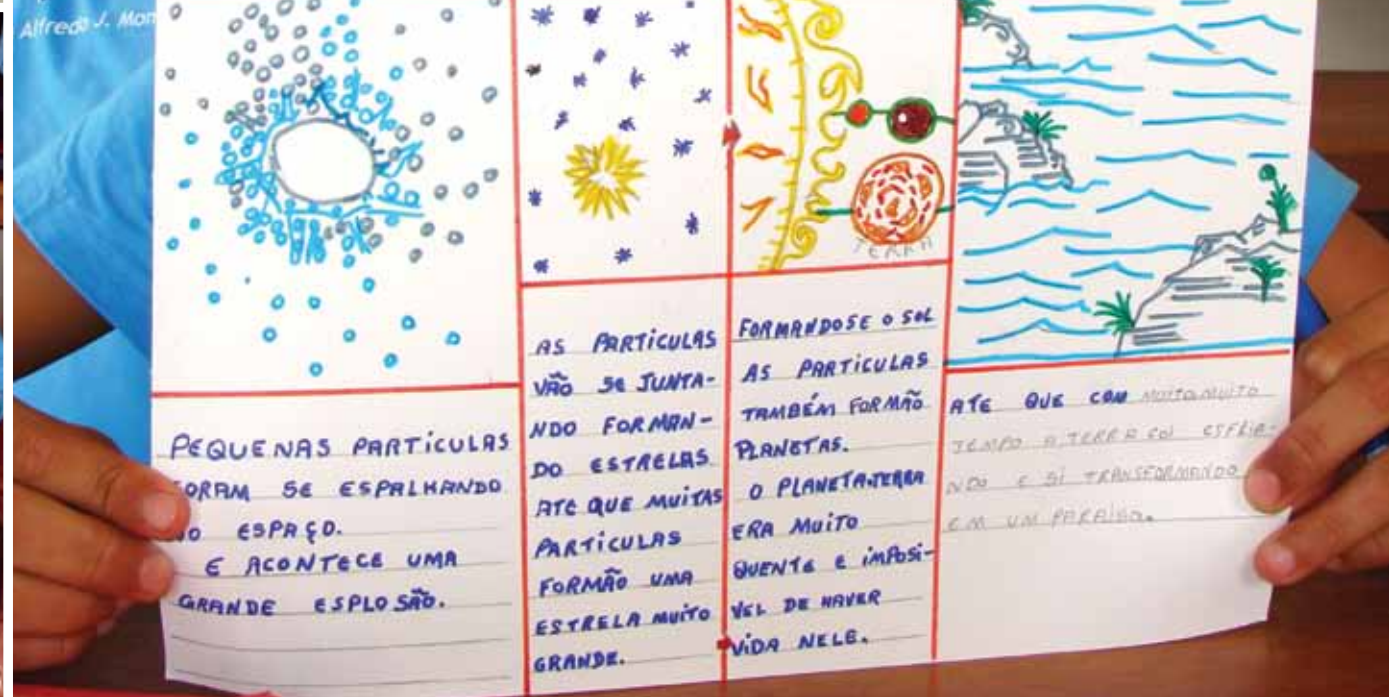 Alfredo J. Mon
TERRA
PEQUENAS PARTÍCULAS
FORAM SE ESPALHANDO
NO ESPAÇO.
E ACONTECE UMA
GRANDE ESPLOSÃO.
AS PARTÍCULAS
VÃO SE JUNTA-
NDO FORMAN-
DO ESTRELAS
ATE QUE MUITAS
PARTÍCULAS
FORMÃO UMA
ESTRELA MUITO
GRANDE.
FORMANDOSE O SOL
AS PARTÍCULAS
TAMBÉM FORMÃO
PLANETAS.
O PLANETA.TERRA
ERA MUITO
QUENTE E IMPOSI-
VEL DE HAVER
VIDA NELE.
ATE QUE COM MUITO.MUITO
TEMPO A TERRA FOI ESFRIA-
NDO E SI TRANSFORMANDO
EM UM PARAÍSO.